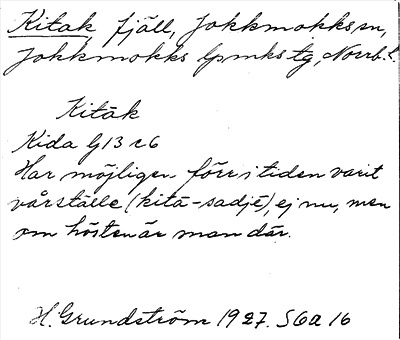 Kitak, fjäll, Jokkmokks sn,
Jokkmokks lpmkstg, Norrb. l.
Kitāk
Kida G13 r6
Har möjligen förr i tiden varit
vårställe (kitā-sadjē), ej nu, men
om hösten är man där.
H. Grundström 1927. S6a 16